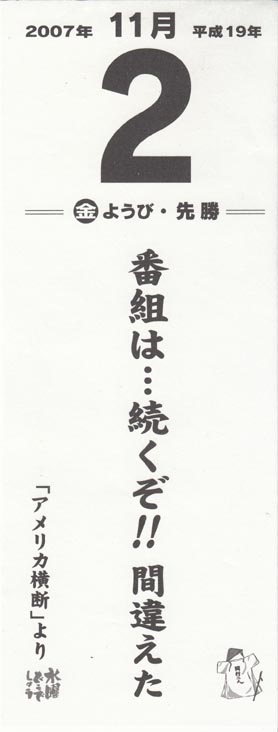 2007年 11月 平成19年
2
㊎ようび・先勝
番組は…続くぞ!! 間違えた
「アメリカ横断」より
水曜
どうで
しょう